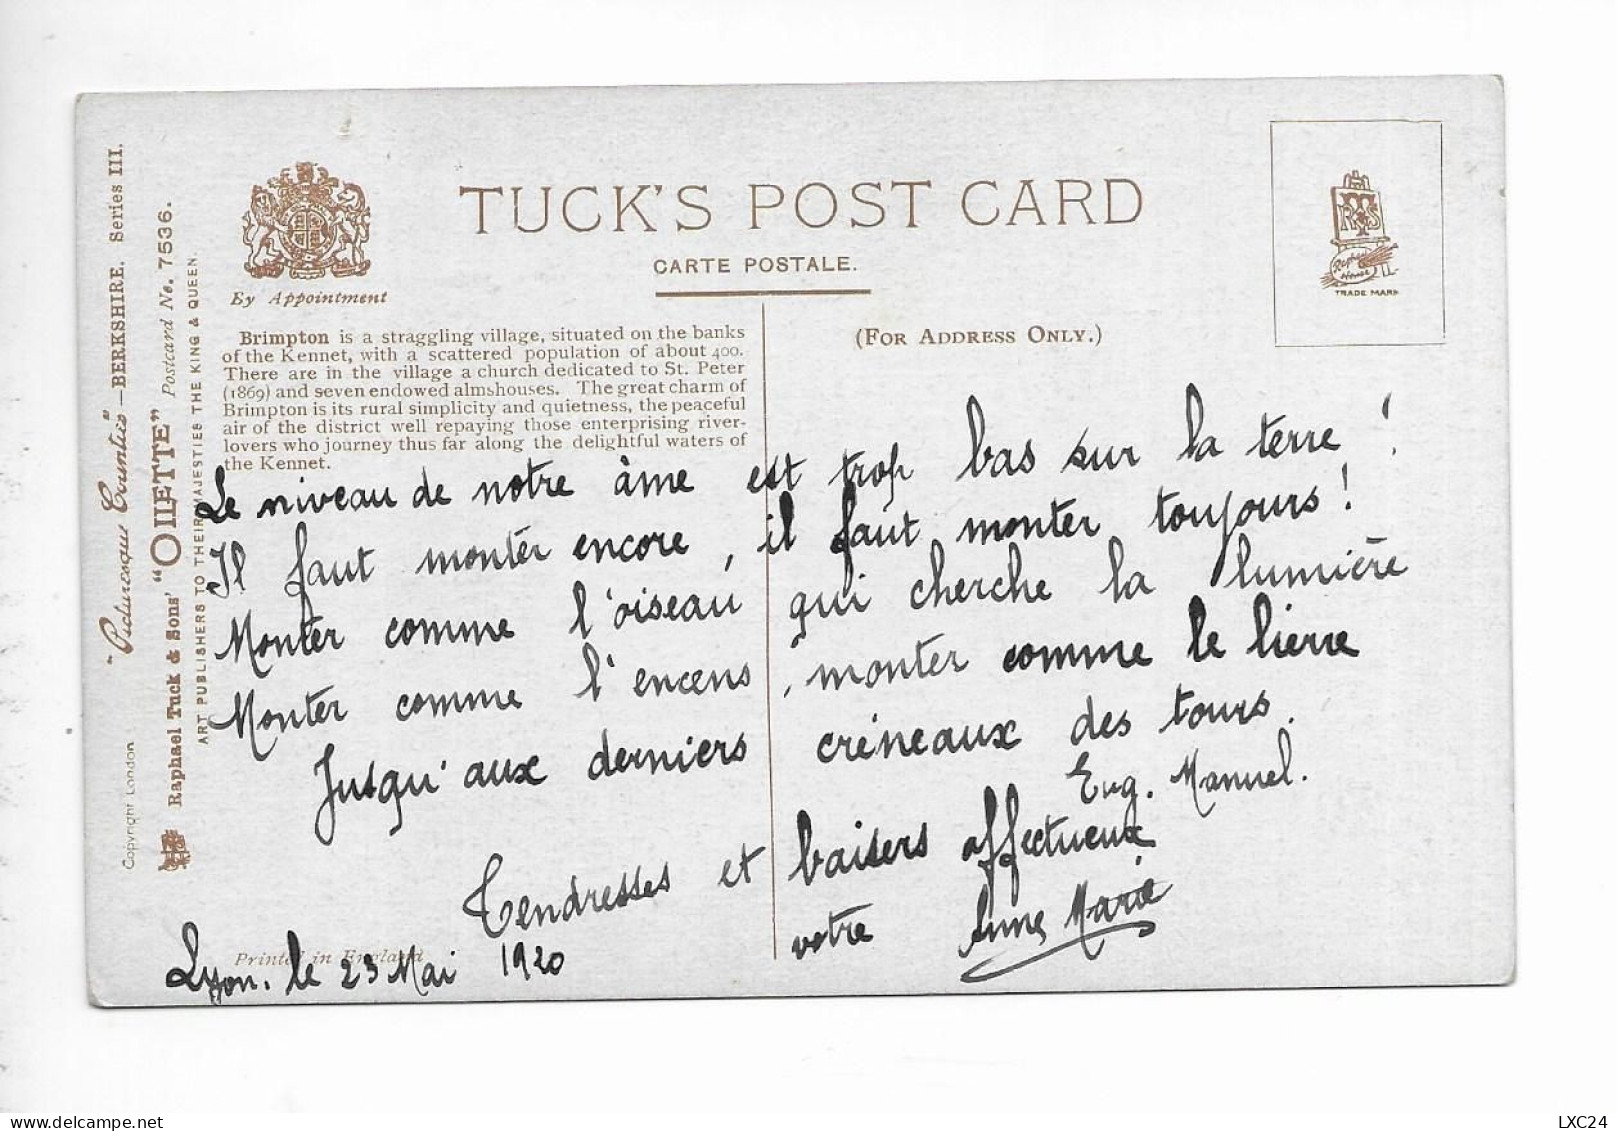 "Picturesque Counties"—BERKSHIRE. Series III.
Copyright London
Raphael Tuck & Sons' "OILETTE" Postcard No. 7536.
ART PUBLISHERS TO THEIR MAJESTIES THE KING & QUEEN.
By Appointment
TUCK'S POST CARD
CARTE POSTALE.
(FOR ADDRESS ONLY.)
RTS
Raphael
House
TRADE MARK
Brimpton is a straggling village, situated on the banks
of the Kennet, with a scattered population of about 400.
There are in the village a church dedicated to St. Peter
(1869) and seven endowed almshouses. The great charm of
Brimpton is its rural simplicity and quietness, the peaceful
air of the district well repaying those enterprising river-
lovers who journey thus far along the delightful waters of
the Kennet.
Le niveau de notre âme est trop bas sur la terre !
Il faut monter encore, il faut monter toujours !
Monter comme l'oiseau qui cherche la lumière
Monter comme l'encens, monter comme le lierre
Jusqu'aux derniers créneaux des tours.
Eug. Manuel.
Tendresses et baisers affectueux
votre Anne Marie
Printed in England
Lyon. le 23 Mai 1920
LXC24